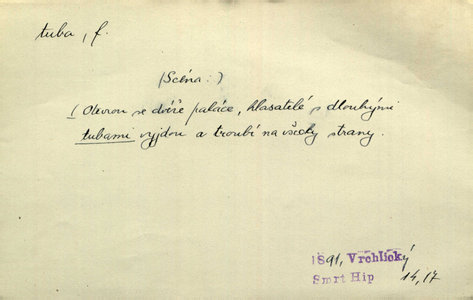 tuba, f.
(Scéna:)
( Otevrou se dvéře paláce, hlasatelé s dlouhými
tubami vyjdou a troubí na všecky strany.
1891, Vrchlický
Smrt Hip 14,17